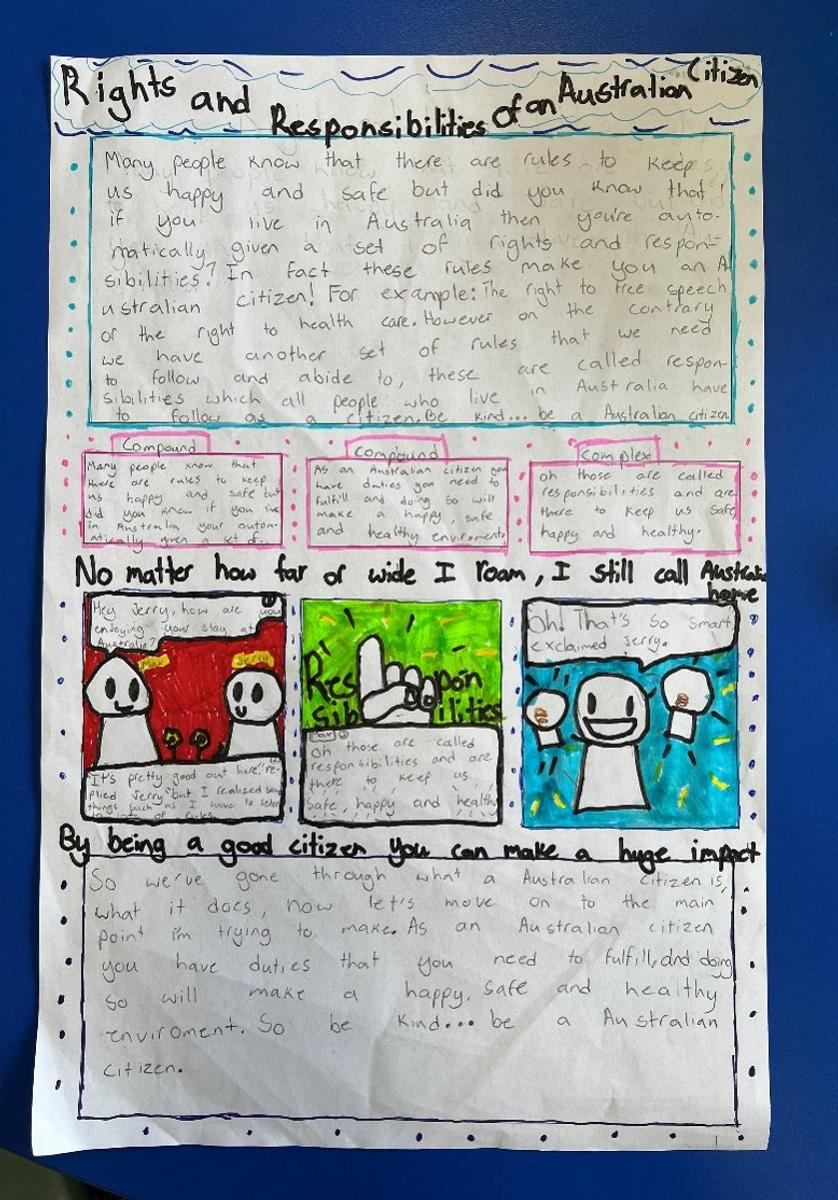 Rights and Responsibilities of an Australian Citizen
Many people know that there are rules to keep
us happy and safe but did you know that
if you live in Australia then you're auto-
matically given a set of rights and respon-
sibilities? In fact these rules make you an A
ustralian citizen! For example: The right to free speech
or the right to health care. However on the contrary
we have another set of rules that we need
to follow and abide to, these are called respon-
sibilities which all people who live in Australia have
to follow as a citizen. Be kind... be a Australian citizen
Compound
Many people know that
there are rules to keep
us happy and safe but
did you know if you live
in Australia your autom-
atically given a set of...
Compound
As an Australian citizen you
have duties you need to
fulfill and doing so will
make a happy, safe
and healthy enviroment
Complex
oh those are called
responsibilities and are
there to keep us safe,
happy and healthy.
No matter how far or wide I roam, I still call Australia
home
Hey Jerry, how are you
enjoying your stay at
Australia?
Max
Jerry
It's pretty good out here" re-
plied Jerry "but I realised some
things such as I have to
rules
Responsibilities
Max
Oh those are called
responsibilities and are
there to keep us
safe, happy and healthy
Oh! That's so smart
exclaimed Jerry.
By being a good citizen you can make a huge impact
So we've gone through what a Australian Citizen is,
what it does, now let's move on to the main
point i'm trying to make. As an Australian citizen
you have duties that you need to fulfill, and doing
so will make a happy, safe and healthy
enviroment. So be kind... be a Australian
citizen.